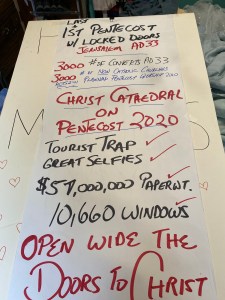 LAST
1ST PENTECOST
W/ LOCKED DOORS
JERUSALEM AD33
3000 # OF CONVERTS AD33
3000 # OF NON CATHOLIC CHURCHES
PLANNING PENTECOST 2020
CHRIST CATHEDRAL
ON
PENTECOST 2020
TOURIST TRAP ✓
GREAT SELFIES ✓
$57,000,000 PAPERWT. ✓
10,660 WINDOWS ✓
OPEN WIDE THE
DOORS TO CHRIST
H
M